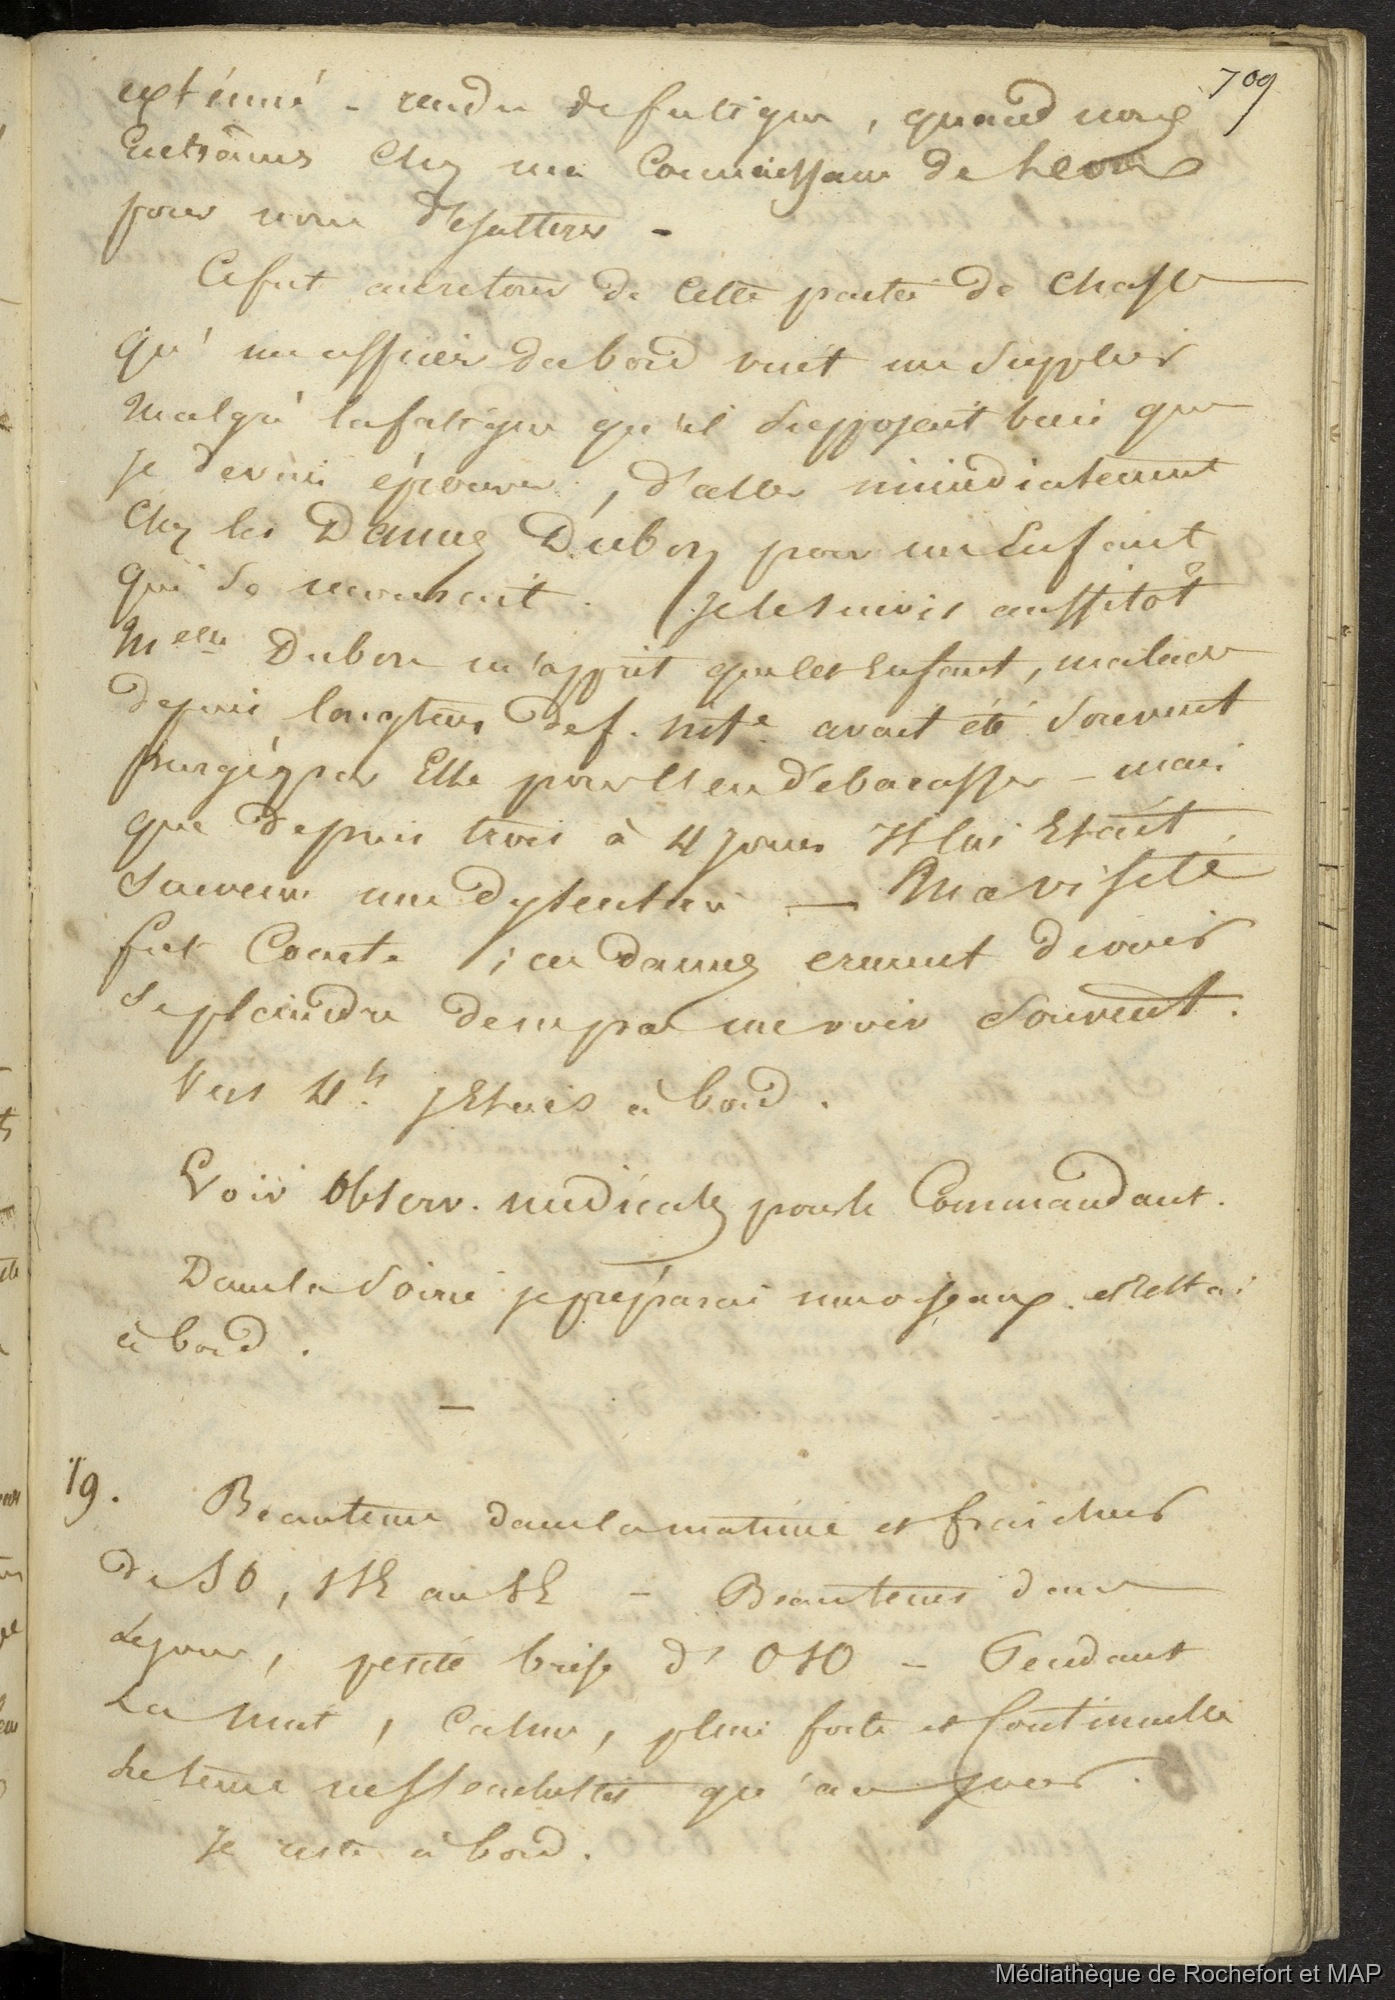 709
exténué - rendu de fatigue, quand nous
Entrâmes Chez une Connaissance de Leon
pour nous désaltérer -
Ce fut au retour de Cette partie de Chasse
qu'un officier du bord vint me Supplier
Malgré la fatigue qu'il Supposait bien que
je devais éprouver, d'aller immédiatement
Chez les Dames Dubos pour un Enfant
qui Se mourait. Je le Suivis aussitôt
Melle Dubos m'apprit que let Enfant, malade
depuis longtems de f. mte avait été Souvent
purgé par Elle pour l'en débarasser - mais
que depuis trois à 4 jours Il lui Etait
Survenu une dyssenterie — Ma visite
fut Courte ; ces dames crurent devoir
Se plaindre de ne pas me voir Souvent.
Vers 4h. j'Etais à bord.
Voir observ. médicales pour le Commandant.
Dans la Soirée je préparai mes oiseaux. et Restai
à bord.
—
19. Beau tems dans la matinée et fraicheur
de SO, SSE au SE - Beau tems dans
Le jour, petite brise d'OSO - Pendant
La Nuit, Calme, pluie forte et Continuelle
Le tems ne s'Eclaircit qu'au jour.
Je reste à bord.
Médiathèque de Rochefort et MAP